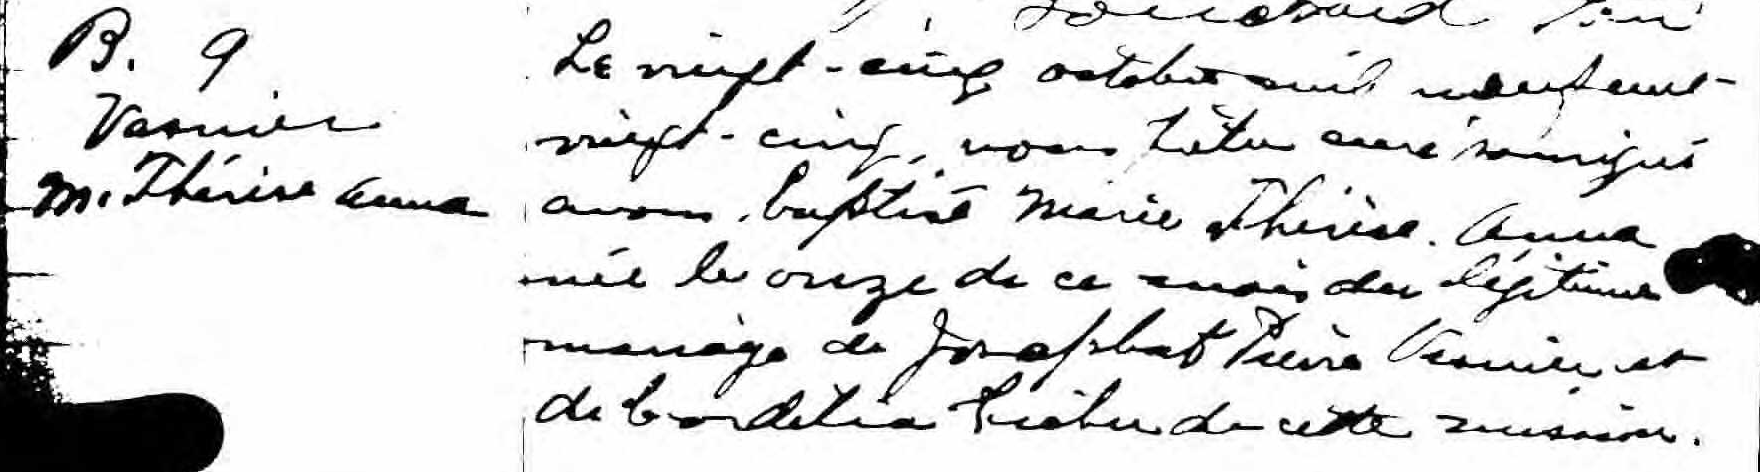 B. 9
Vasnier
M. Thérèse Anna
Le vingt-cinq octobre mil neuf cent
vingt-cinq, nous curé soussigné
avons baptisé Marie Thérèse Anna
née le onze de ce mois du légitime
mariage de Josaphat Pierre Vasnier et
de Cordélia de cette mission.